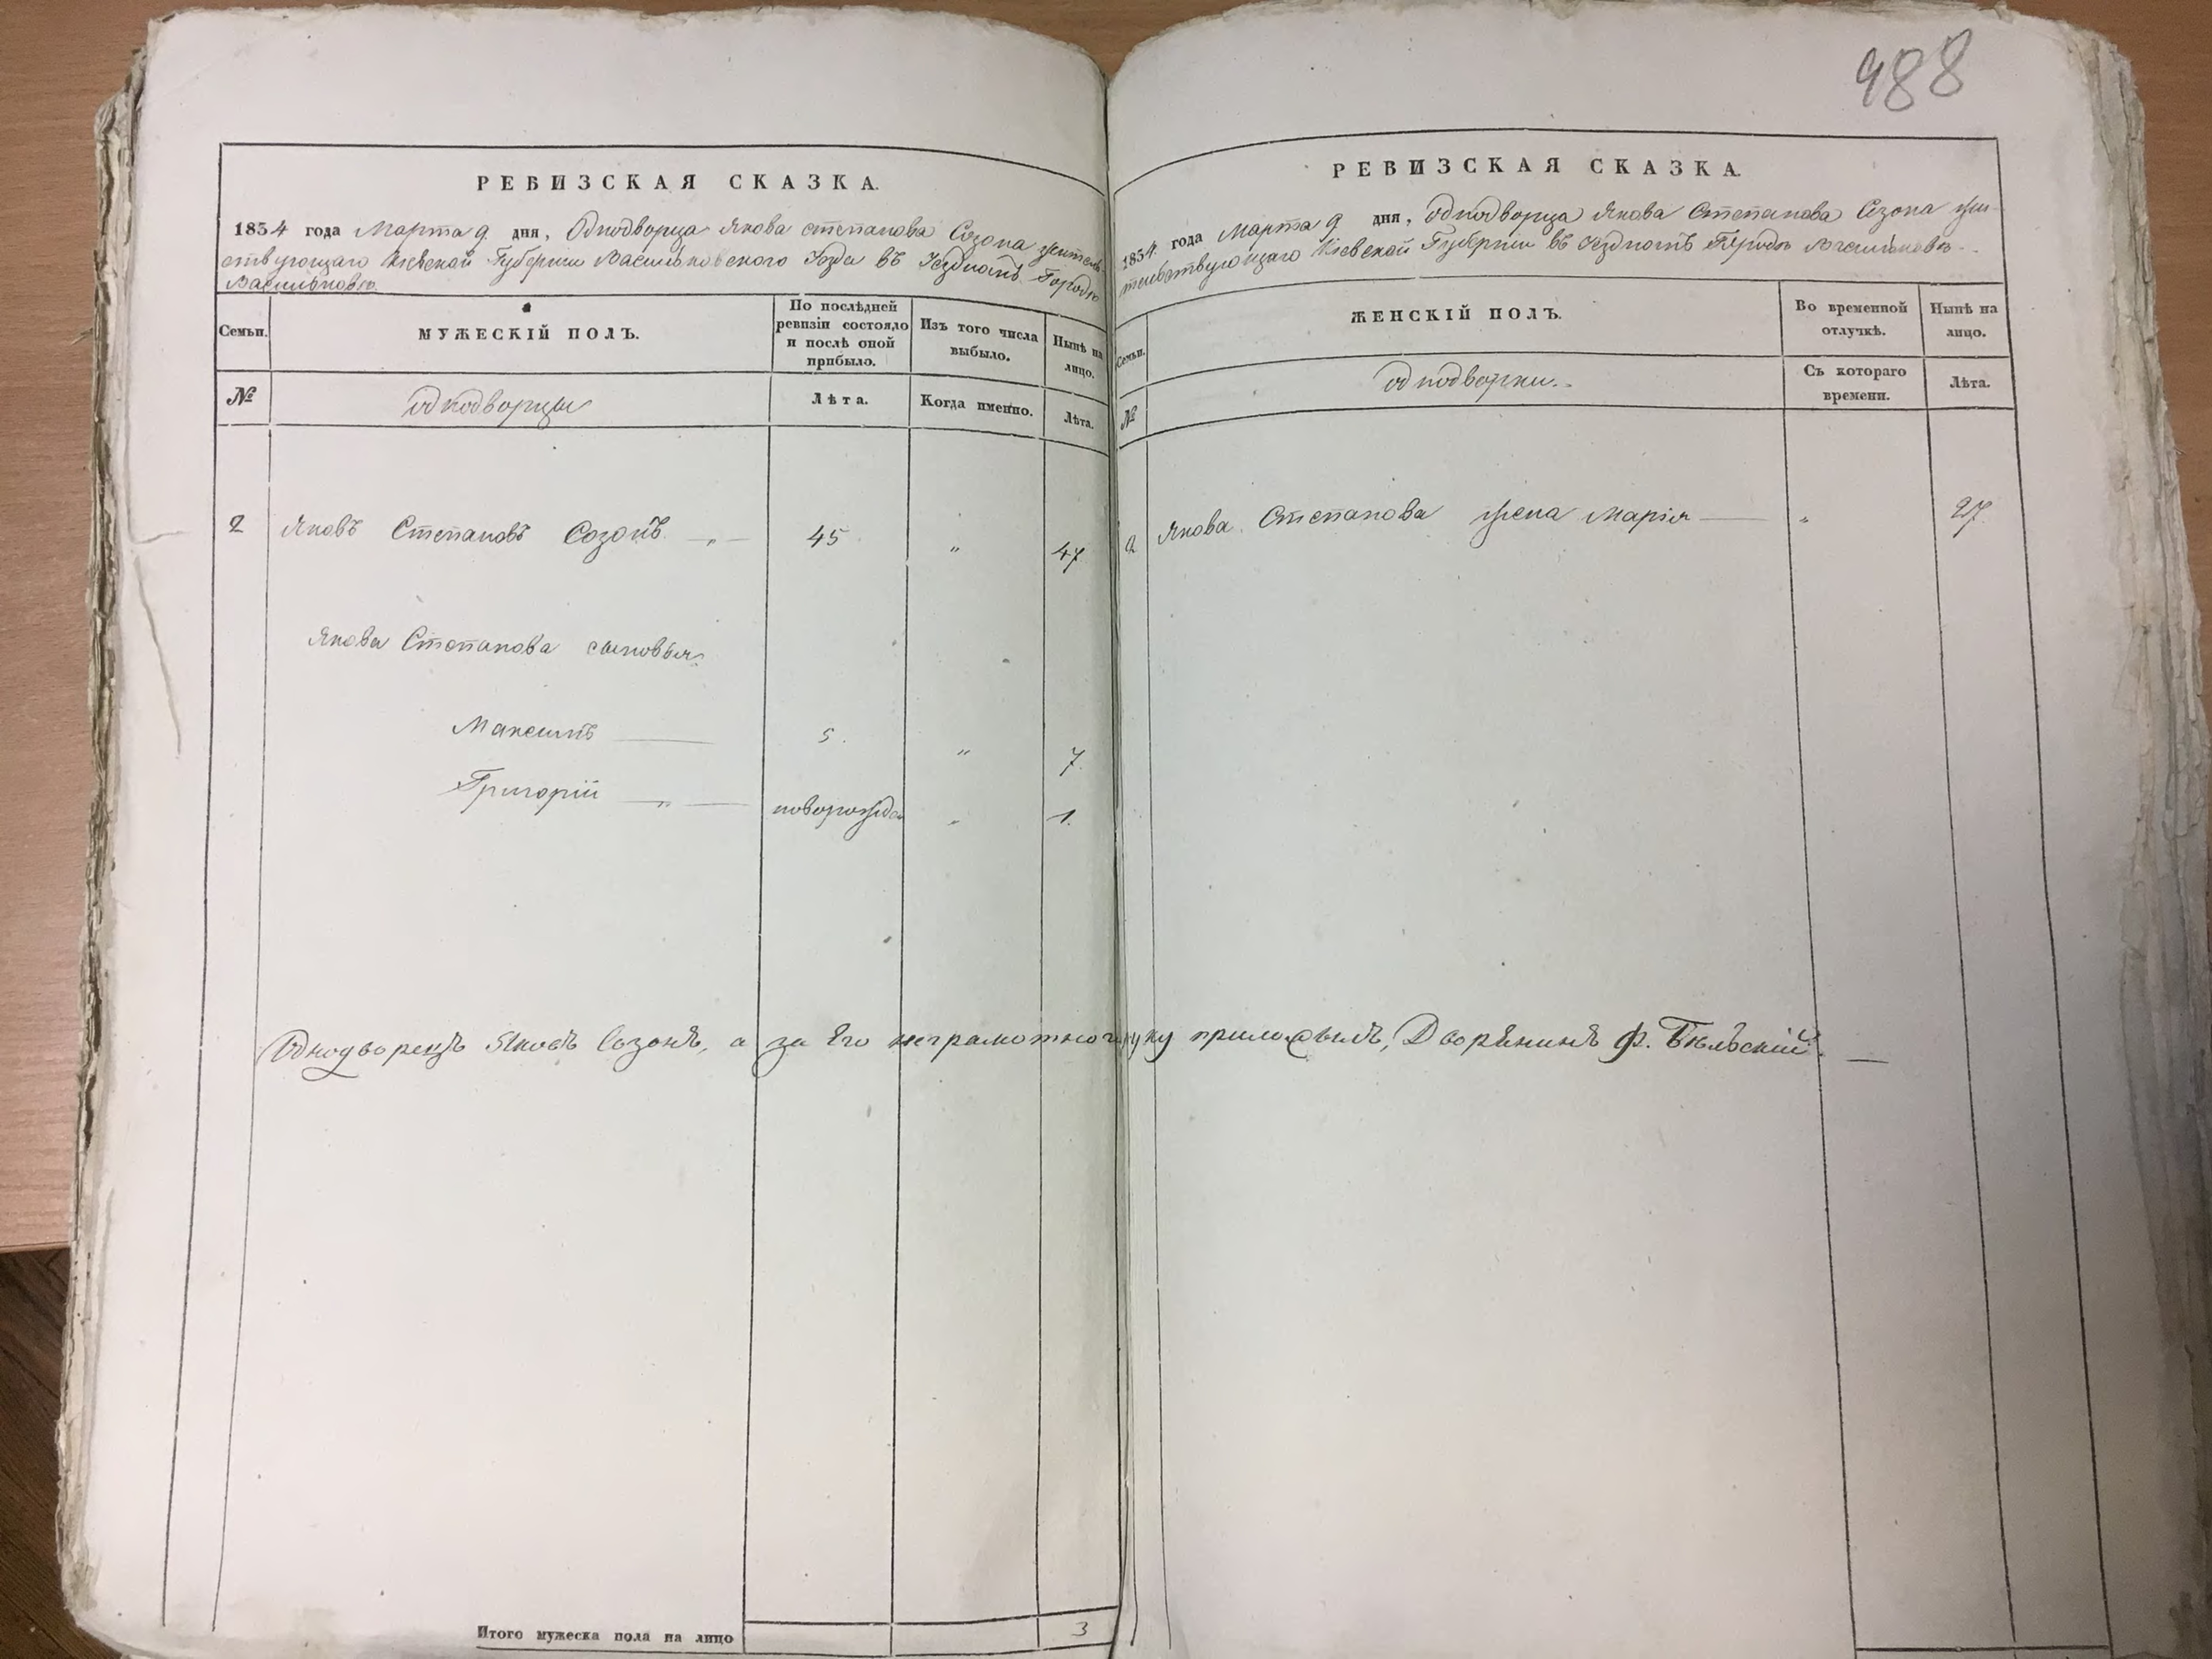 988
РЕВИЗСКАЯ СКАЗКА.
1854 года Марта 9 дня, Однодворца Якова Степанова Созона жительствующаго Кіевской Губерніи Васильковского Уѣзда въ Уѣздномъ Городѣ
Васильковѣ
Семьи.
МУЖЕСКІЙ ПОЛЪ.
По послѣдней
ревизіи состояло
и послѣ оной
прибыло.
Изъ того числа
выбыло.
Нынѣ на
лицо.
№
однодворцы
Лѣта.
Когда именно.
Лѣта.
2 Яковъ Степановъ Созонъ — „ — 45 „ 47
Якова Степанова сыновья:
Максимъ — 5. „ 7.
Григорій — „ — новорожден „ 1.
Однодворецъ Яковъ Созонъ, а за Его неграмотного руку приложилъ, Дворянинъ Ф. Бѣльскій. —
Итого мужеска пола на лицо 3
РЕВИЗСКАЯ СКАЗКА.
1854 года Марта 9 дня, Однодворца Якова Степанова Созона жи-
тельствующаго Кіевской Губерніи въ Уѣздномъ Городѣ Васильковѣ.
Семьи.
ЖЕНСКІЙ ПОЛЪ.
Во временной
отлучкѣ.
Нынѣ на
лицо.
№
однодворки.
Съ котораго
времени.
Лѣта.
2 Якова Степанова жена Марія — „ 27.